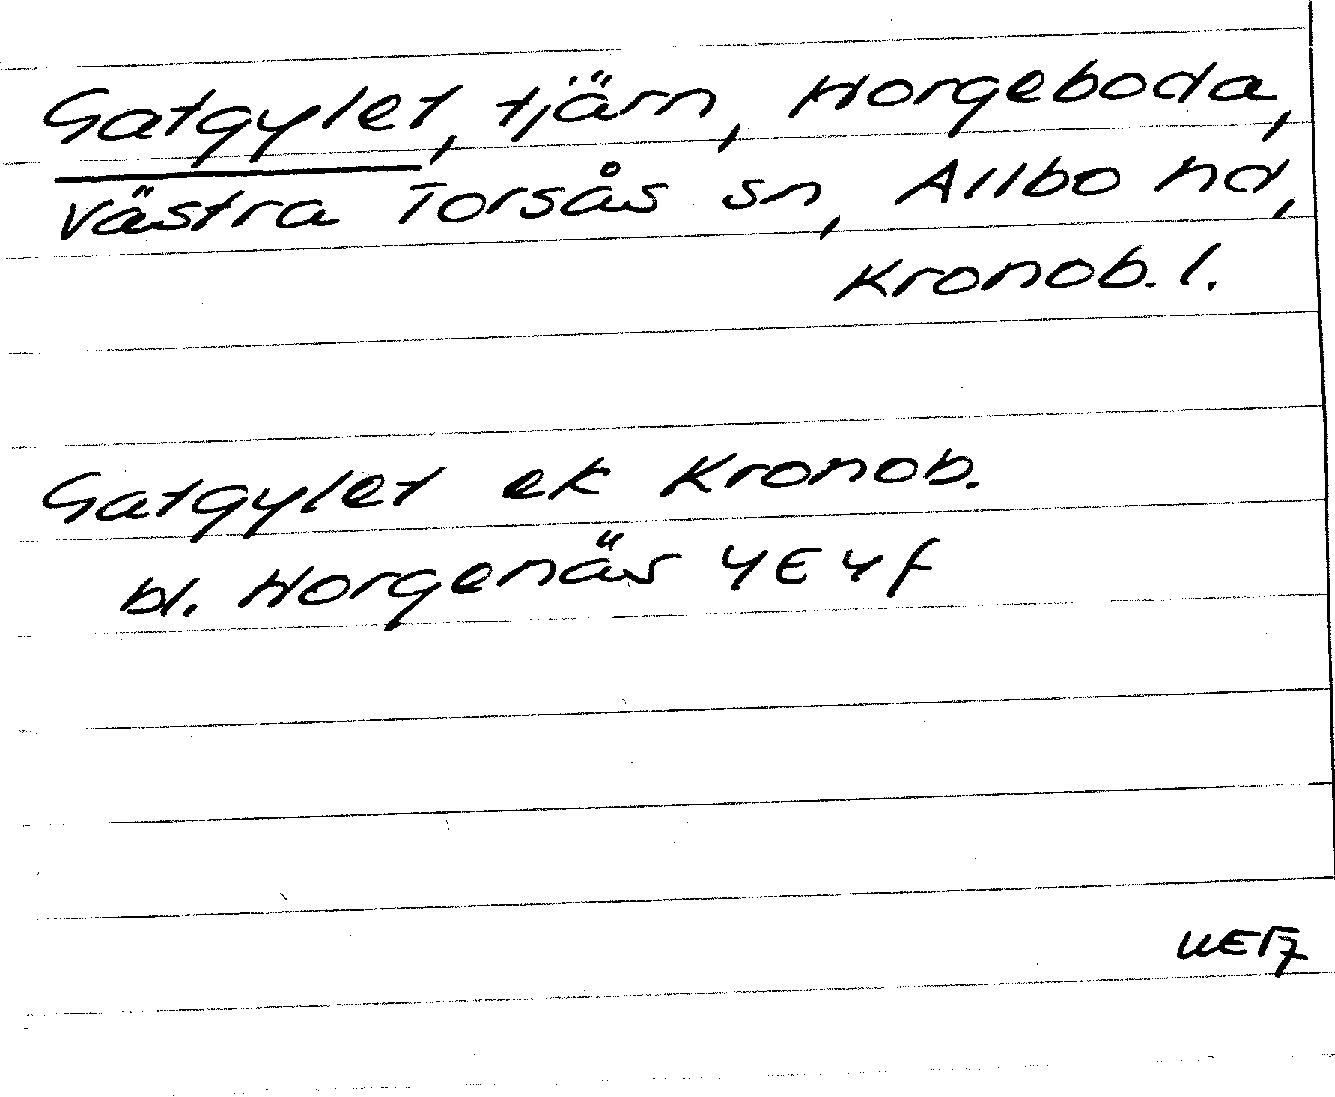 Gatgylet, tjärn, Horgeboda,
Västra Torsås sn, Allbo hd,
Kronob. l.
Gatgylet ek Kronob.
bl. Horgenäs 4E4f